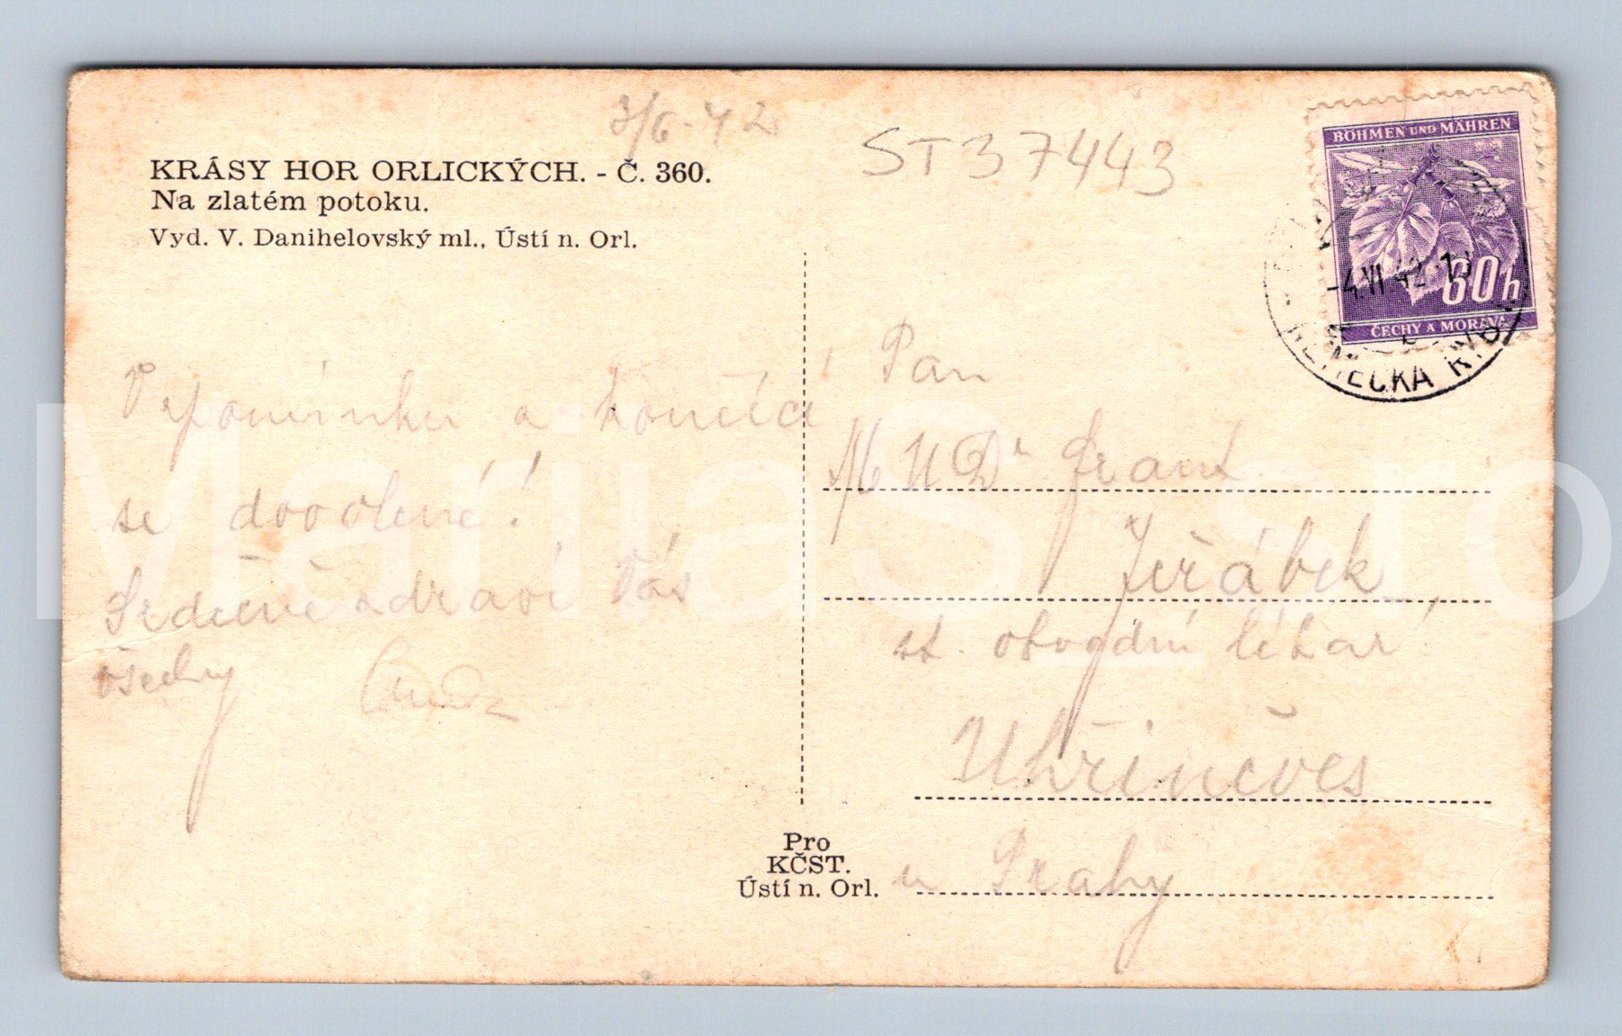 7/6-42
ST37443
KRÁSY HOR ORLICKÝCH. - Č. 360.
Na zlatém potoku.
Vyd. V. Danihelovský ml., Ústí n. Orl.
BÖHMEN UND MÄHREN
60h
ČECHY A MORAVA
-4.VI.42
NĚMECKÁ
Vzpomínku a
se dovolené!
Srdečně zdraví Vás
všechny
Pan
MUDr
Jeřábek,
st. obvodní lékař
Uhříněves
u Prahy
Pro
KČST.
Ústí n. Orl.